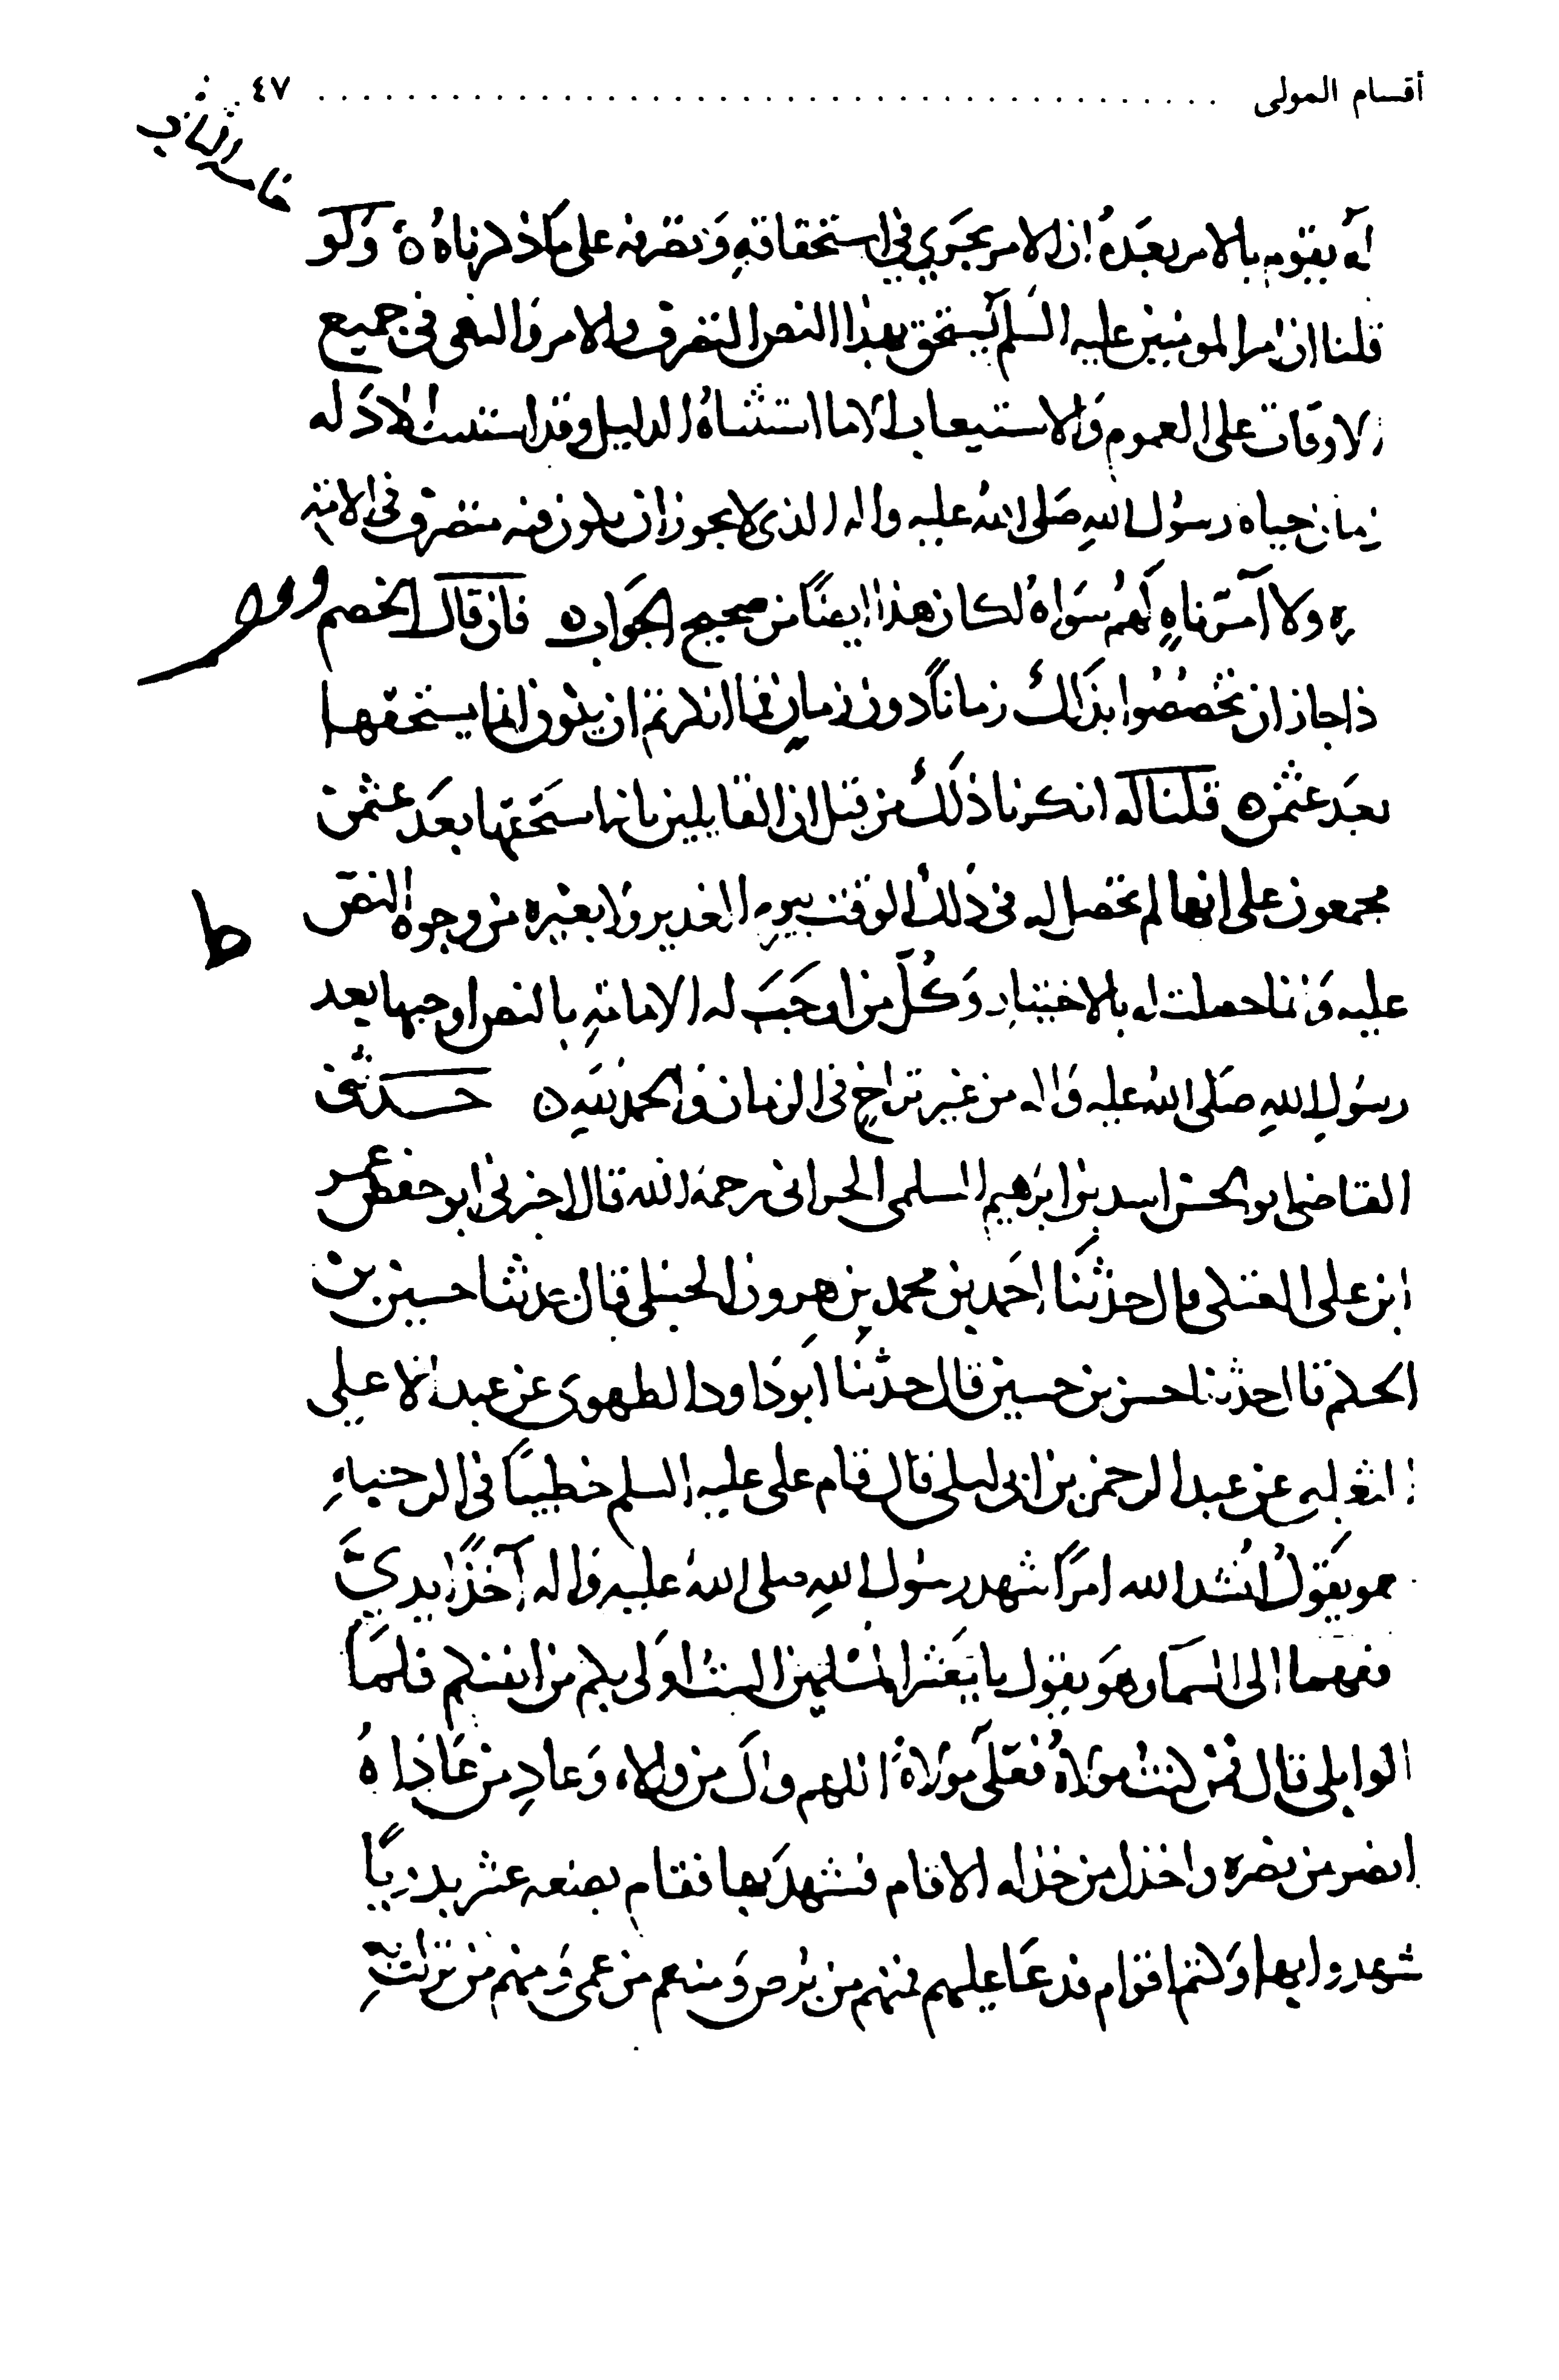 أقسام المولى ........................................ ٤٧
انه يقوم بالامر بعَدهُ ان الامر يجَري في استحقاقهِ وَتصرفه على مَا ذكرناهُ ه وَلَو
قلنا ان امير المومنين عليه السَلم يستحق بهذا النص التصرف والامر وَالنهى فى جميع
الاوقات على العموم وَالاستيعاب الا ما استثناهُ الدليل وقد استثنت الادَله
زمان حياه رسُول اللهِ صَلى اللهُ عليه واله الذى لا يجوز ان يكون فيه متصرف فى الامة
غيره ولا آمرٌ ناهٍ لَهُم سِوَاهُ لكان هذا ايضًا من صحيح الجوَاب ه فان قال الخصم
اذا جاز ان تخصصُوا بذَلكَ زمانًا دون زمانٍ فما انكرتم ان يكون انما يستحقها
بعَد عثمن ه قلنا له انكرنا ذلكَ من قبل ان القايلين بانه استحقها بعَد عثمن
مجمعون على انها لم تحصل له فى ذلكَ الوقت بيوم الغدير وَلا بغيره من وجوه النص
عليه وَانما حصلت له بالاختيار وَكُلّ من اوجَبَ له الامامة بالنص اوجبها بعد
رسُول اللهِ صَلى اللهُ عليه وَاله من غير تراخٍ فى الزمان وَالحمد للهِ ه حدثنى
القاضى ابو الحسن اسد بن ابرَهيم السلمى الحرانى رحمهُ الله قال اخبرنى ابو حفص عمر
ابن على العتكى قال حدثنَا احَمد بن محمد بن هرون الحنبلى قال حدثنا حسين بن
الحكم قال حدثنا حسن بن حسين قال حدثنَا ابَو دَاود الطهوى عن عبد الاعلى
الثعلبى عن عبد الرحمن بن ابى ليلى قال قام على عليه السلم خطيبًا فى الرحبةِ
وهو يقَولُ انُشد الله امرًا شهد رسُول اللهِ صلى اللهُ عليه وَاله آخذًا بيديَّ
يرفعهما الى السَمآ وهَو يقول يا معَشر المسْلمين الستُ اوَلى بكم من انفسكم فلمَا
قالوا بلى قال فمَن كنتُ مولاهُ فعَلي مَولاهُ اللهم وَالِ من والاه وَعادِ من عَادَاهُ
وانصر من نصره واخذل من خذله الا قام فشهدَ بها فقام بضعه عشر بدرِيًا
شهدوا بها وَكتمها اقوام فدعَا عليهم فمنهم من بَرص وَمنهم من عمى وَمنهم من نزلت بهِ